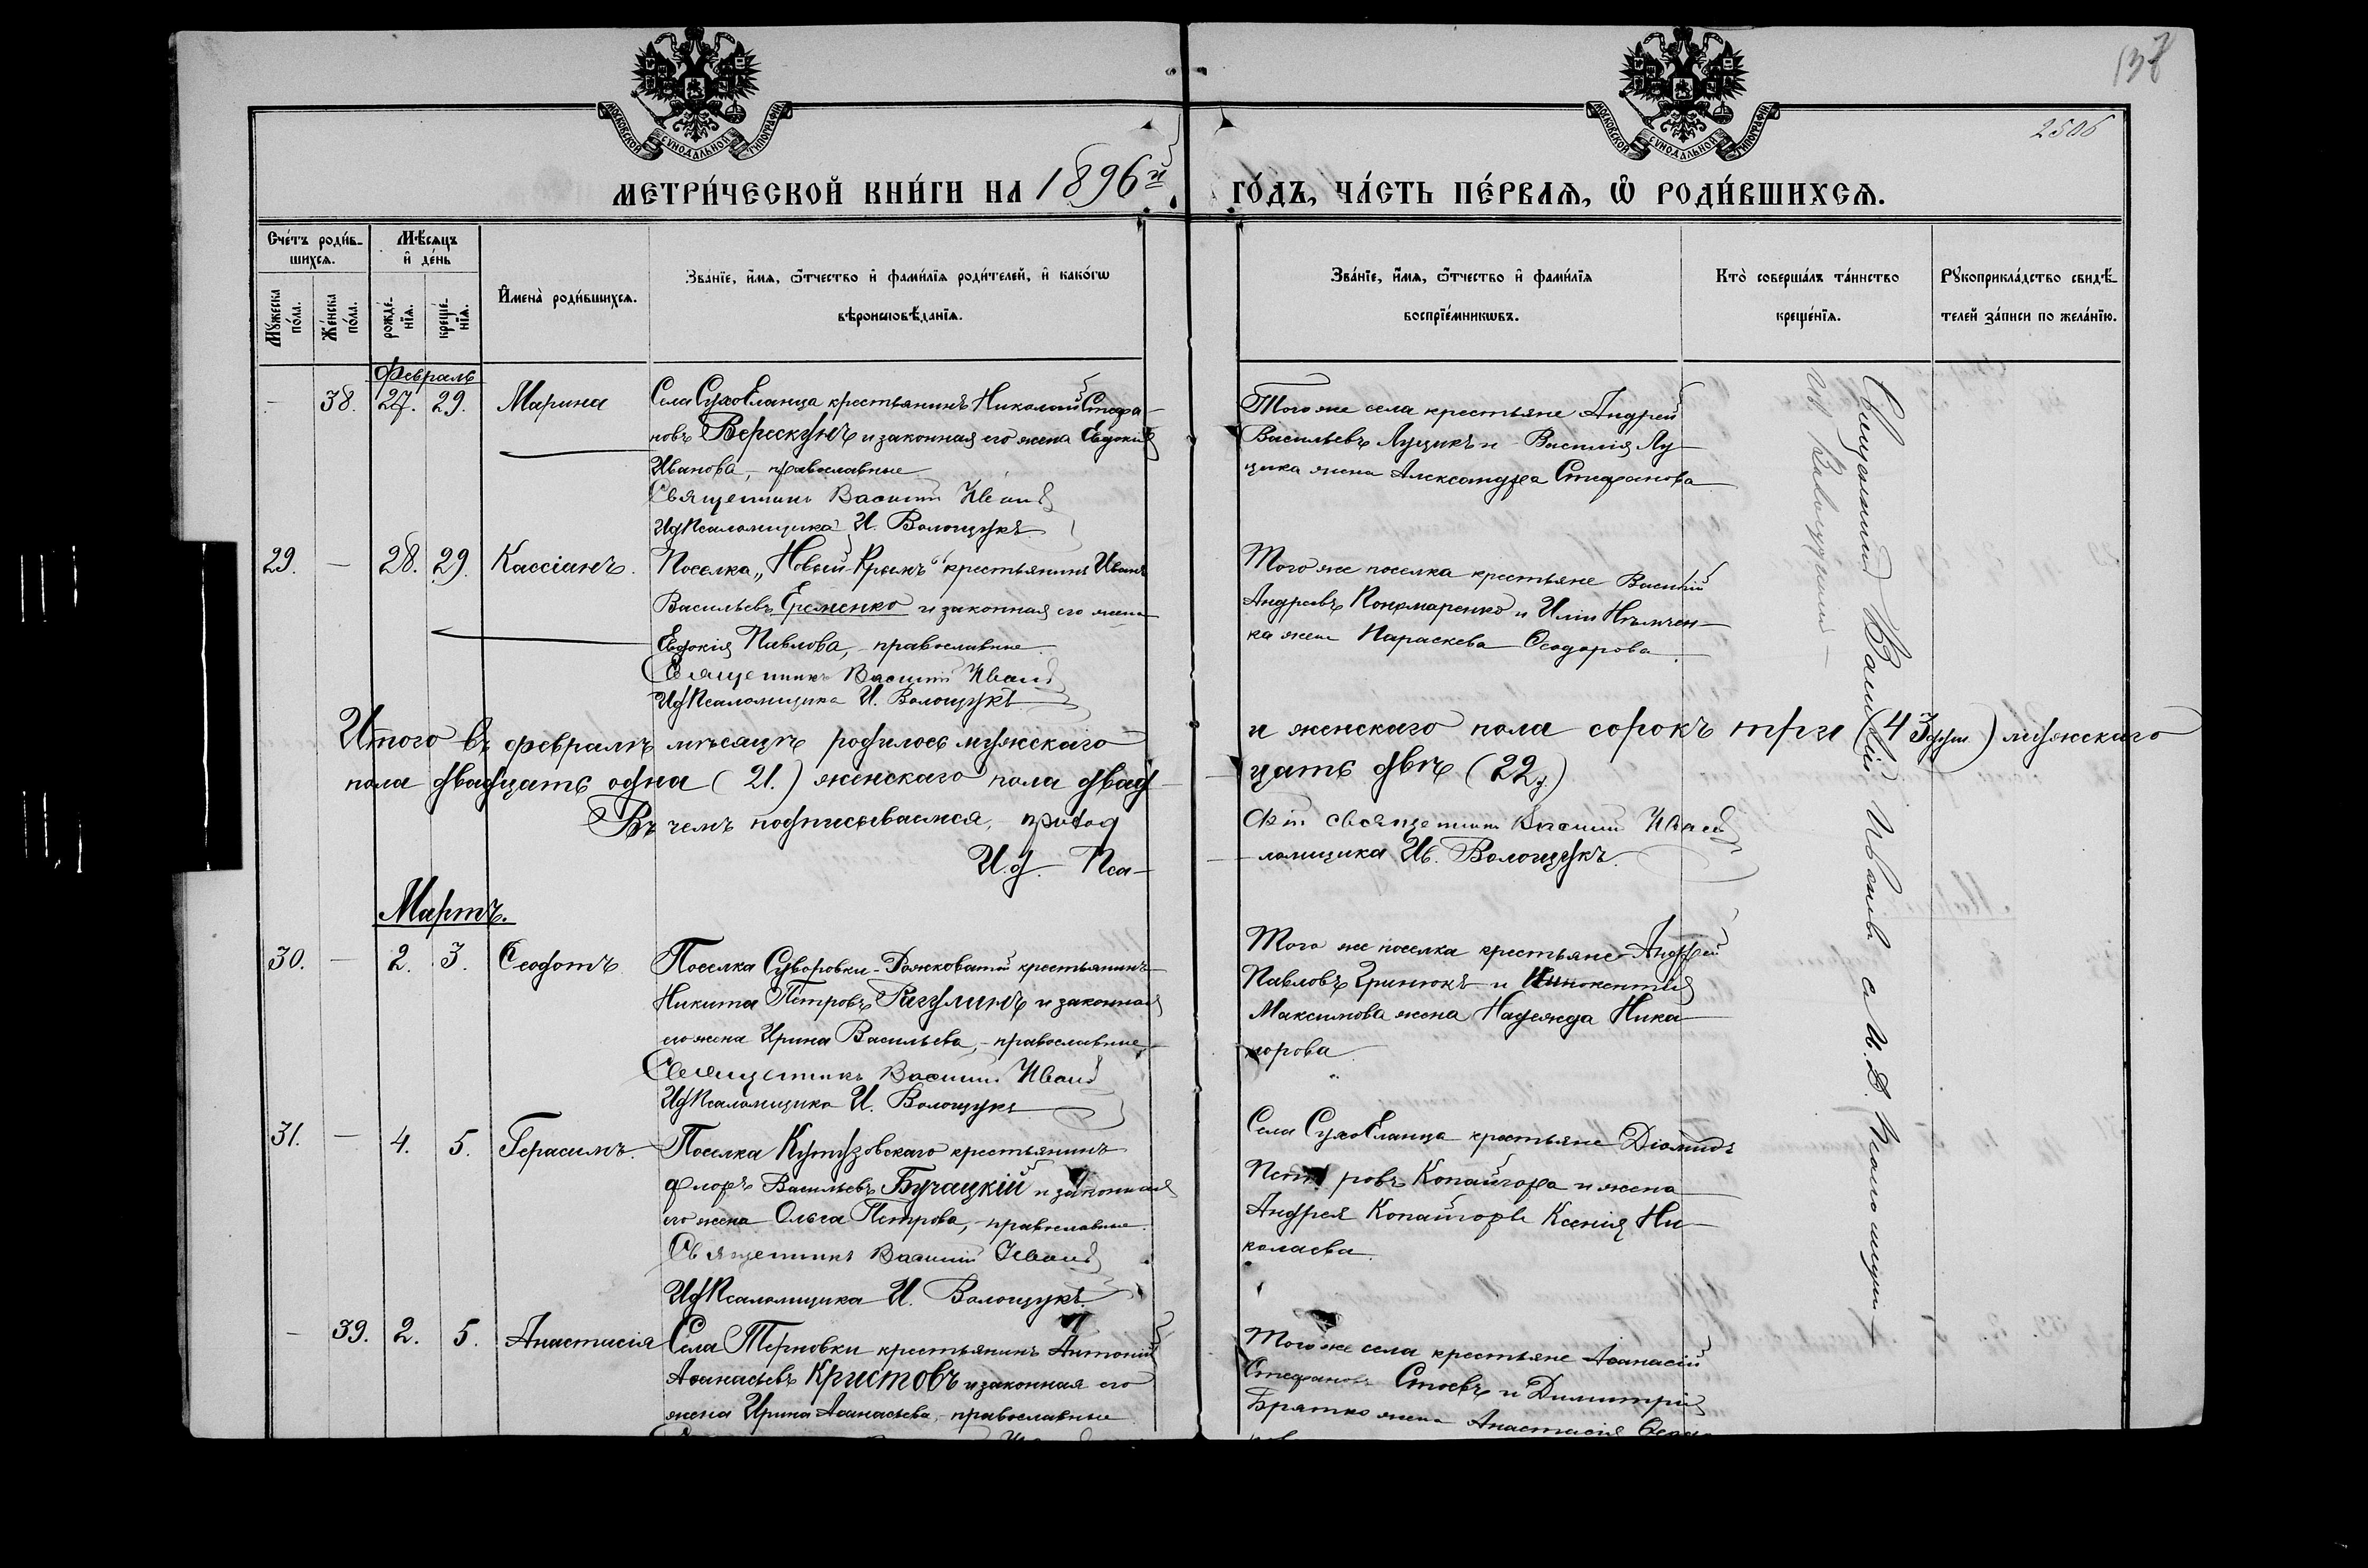 137
2506
МОСКОВСКОЙ СѴНОДАЛЬНОЙ ТИПОГРАФІИ
МОСКОВСКОЙ СѴНОДАЛЬНОЙ ТИПОГРАФІИ
МЕТРИ́ЧЕСКОЙ КНИ́ГИ НА 1896й ГО́ДЪ, ЧА́СТЬ ПЕ́РВАѦ, Ѿ РОДИ́ВШИХСѦ.
Счетъ роди́вшихсѧ.
Мꙋжеска по́ла.
Же́нска по́ла.
Мѣсѧцъ и де́нь
рожде́нїѧ.
креще́нїѧ.
И҆мена̀ роди́вшихсѧ.
Зва́нїе, и҆мѧ, ѻ҆тчество и҆ фами́лїѧ роди́телей, и҆ како́гѡ
вѣроисповѣданїѧ.
Зва́нїе, и҆мѧ, ѻ҆тчество и҆ фами́лїѧ
воспрїе́мникѡвъ.
Кто̀ соверша́лъ та́инство
креще́нїѧ.
Рꙋкоприкла́дство свидѣ-
телей за́писи по жела́нїю.
Февраль
- 38. 27. 29. Марина
Села СухоЕланца крестьянинъ Николай Стефа-
новъ Верескунъ и законная его жена Евдокія
Иванова, - православные
Священникъ Василій Ивановъ
ИдПсаломщика И. Волощукъ
Того же села крестьяне Андрей
Васильевъ Луцикъ и Василія Лу-
цика жена Александра Стефанова
29. - 28. 29. Кассіанъ.
Поселка „Новый-Крымъ“ крестьянинъ Иванъ
Васильевъ Еременко и законная его жена
Евдокія Павлова, - православные
Священникъ Василій Ивановъ
ИдПсаломщика И. Волощукъ
Того же поселка крестьяне Василій
Андреевъ Пономаренко и Иліи Нѣмчен-
ка жена Параскева Ѳеодорова.
Итого въ февралѣ мѣсяцѣ родилось мужскаго и женскаго пола сорокъ три (43) мужскаго
пола двадцать одна (21.) женскаго пола двад-цать двѣ (22)
Въ чемъ подписываемся, приход-скій священникъ Василій Ивановъ
И.д. Пса-ломщика Ив. Волощукъ.
Мартъ.
30. - 2. 3. Ѳеодотъ
Поселка Суворовки-Рожковатой крестьянинъ
Никита Петровъ Рагулинъ и законная
его жена Ирина Васильева, - православные
Священникъ Василій Ивановъ
ИдПсаломщика И. Волощукъ
Того же поселка крестьяне Андрей
Павловъ Гринюкъ и Иннокентія
Максимова жена Надежда Ника-
норова
31. - 4. 5. Герасимъ.
Поселка Кутузовскаго крестьянинъ
Флоръ Васильевъ Бучацкій и законная
его жена Ольга Петрова, - православные.
Священникъ Василій Ивановъ
ИдПсаломщика И. Волощукъ.
Села СухоЕланца крестьяне Діомидъ
Петровъ Копайгора и жена
Андрея Копайгоры Ксенія Ни-
колаева.
- 39. 2. 5. Анастасія
Села Терновки крестьянинъ Антоній
Аѳанасьевъ Кристовъ и законная его
жена Ирина Аѳанасьева, - православные
Того же села крестьяне Аѳанасій
Стефановъ Стоевъ и Димитрія
Братко жена Анастасія
Священникъ Василій Ивановъ съ И.Д. Псаломщика
Ив Волощукомъ